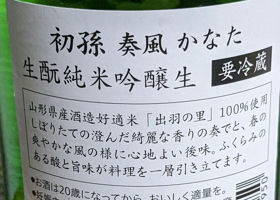 初孫 奏風 かなた
生酛純米吟醸生 要冷蔵
山形県産酒造好適米「出羽の里」100%使用
しぼりたての澄んだ綺麗な香りの奏でと、春の
爽やかな風の様に心地よい後味。ふくらみの
ある酸と旨味が料理を一層引き立てます。
●お酒は20歳になってから。おいしく適量を。